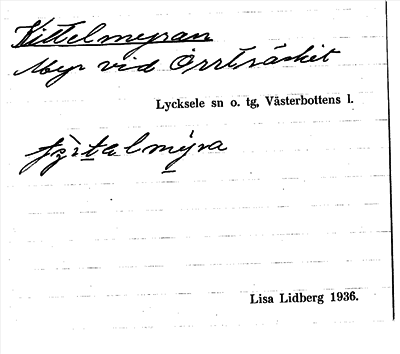 Kittelmyran
Myr vid Örrträsket
Lycksele sn o. tg, Västerbottens l.
Lisa Lidberg 1936.